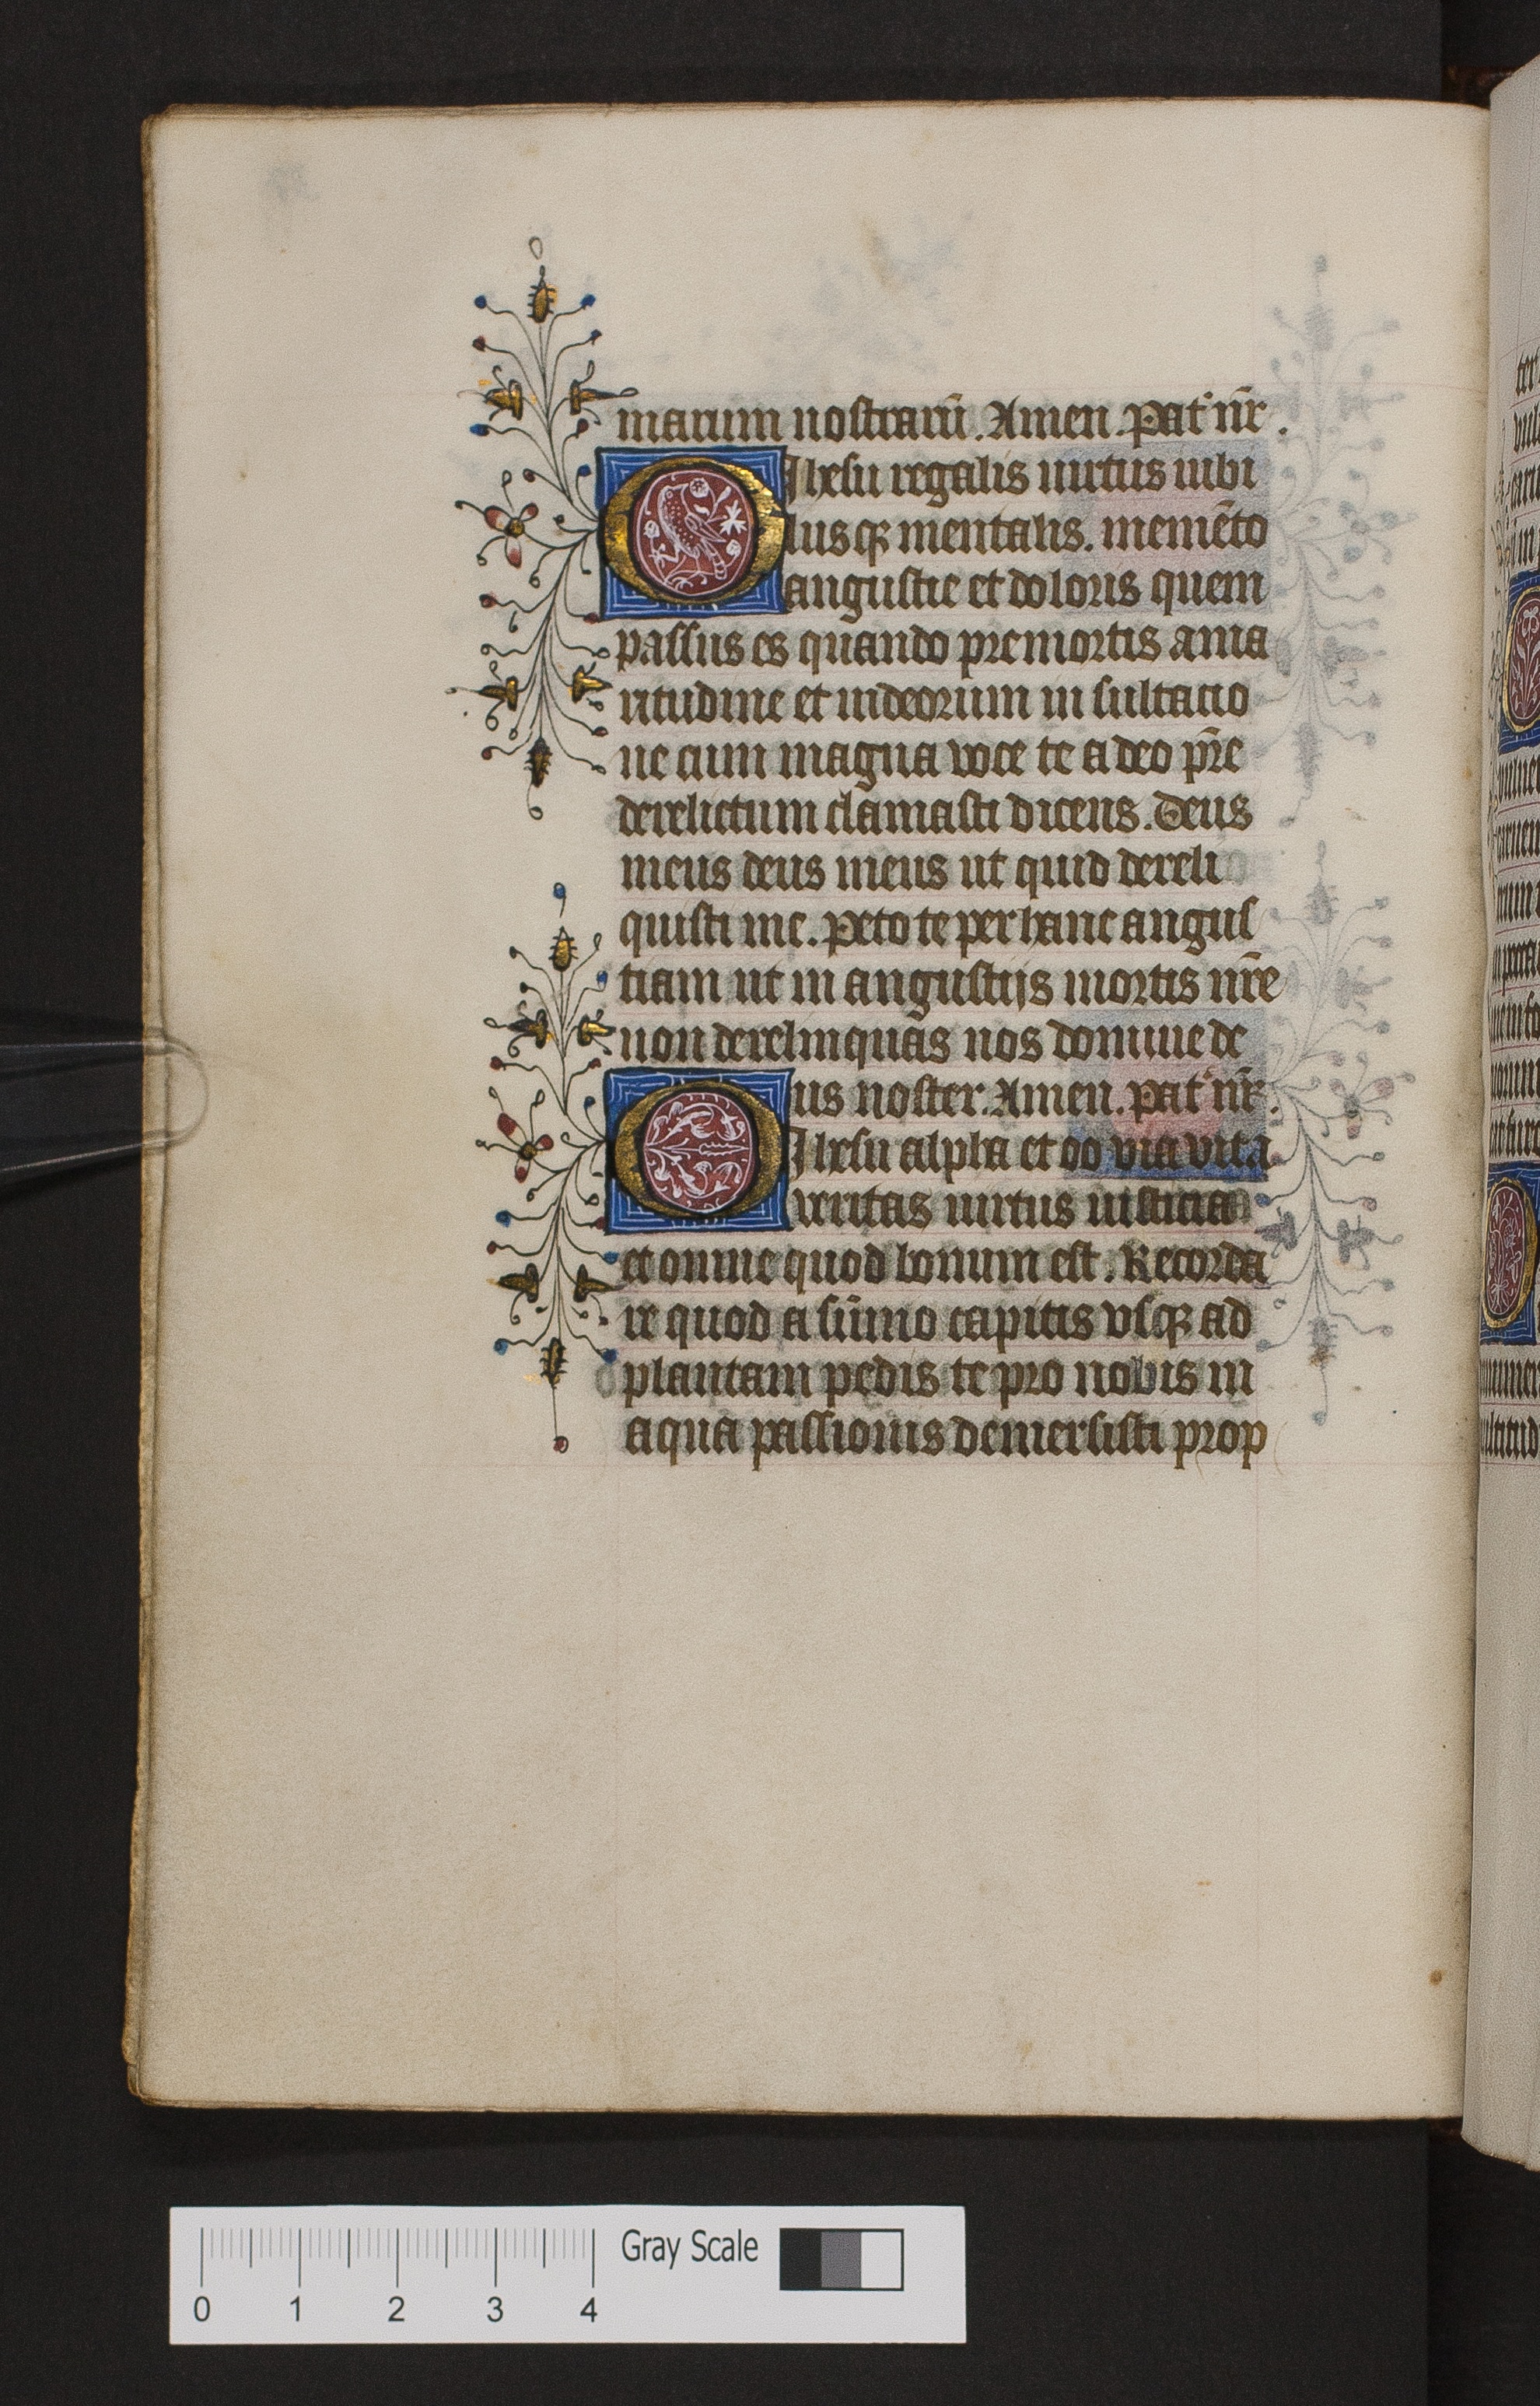 marum nostrarū. Amen. Pat' nr̄.
O Ihesu regalis uirtus iubi
lusqꝫ mentalis. memēto
angustie et doloris quem
passus es quando pre mortis ama
ritudine et iudeorum in sultacio
ne cum magna voce te a deo pr̄e
derelictum clamasti dicens. Deus
meus deus meus ut quid dereli
quisti me. Peto te per hanc angus
tiam ut in angustijs mortis nr̄e
non derelinquas nos domine de
us noster. Amen. Pat' nr̄.
O Ihesu alpha et oo via vita
veritas uirtus iusticia
et omne quod bonum est. Recorda
re quod a sūmo capitis vsqꝫ ad
plantam pedis te pro nobis in
aqua passionis demersisti prop
Gray Scale
0 1 2 3 4